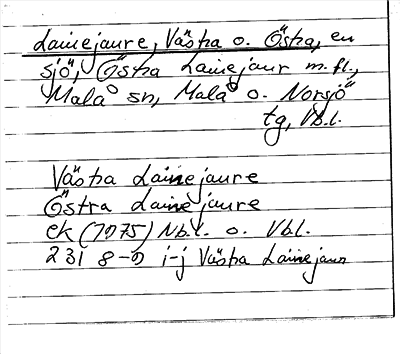 Lainejaure, Västra o. Östra, en
sjö, Östra Lainejaur m.fl.,
Malå sn, Malå o. Norsjö
tg, Vb.l.
Västra Lainejaure
Östra Lainejaure
ek (1975) Nb.l. o. Vbl.
231 8-9 i-j Västra Lainejaur